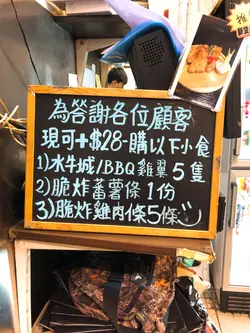 為答謝各位顧客
現可+$28-購以下小食
1)水牛城/BBQ雞翼5隻
2)脆炸蕃薯條1份
3)脆炸雞肉條5條